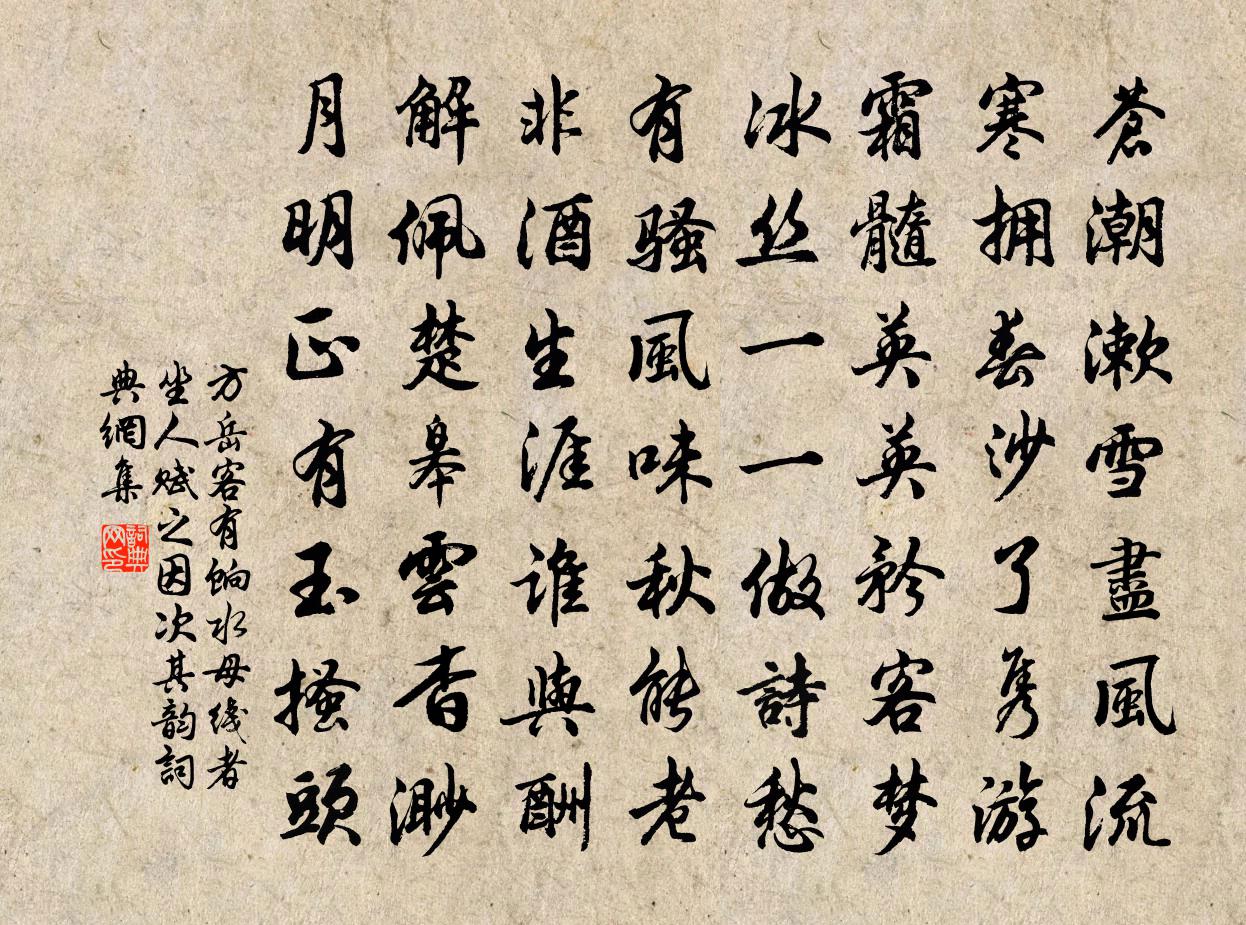 蒼潮漱雪盡風流
寒拥春沙了隽游
霜髓英英矜客梦
冰丝一一傲詩愁
有骚風味秋能老
非酒生涯谁與酬
解佩楚皋雲杳渺
月明正有玉搔頭
方岳客有餉水母线者
坐人赋之因次其韵詞
典網集
詞典网印